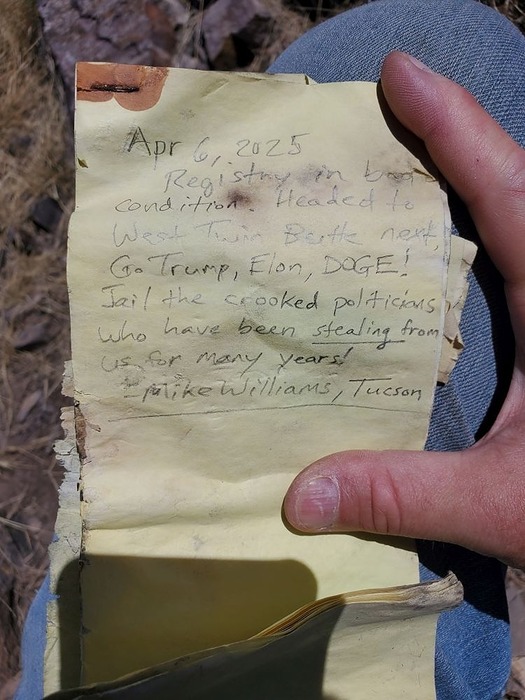 Apr 6, 2025
Registry in bad
condition. Headed to
West Twin Butte next,
Go Trump, Elon, DOGE!
Jail the crooked politicians
who have been stealing from
us for many years!
- Mike Williams, Tucson